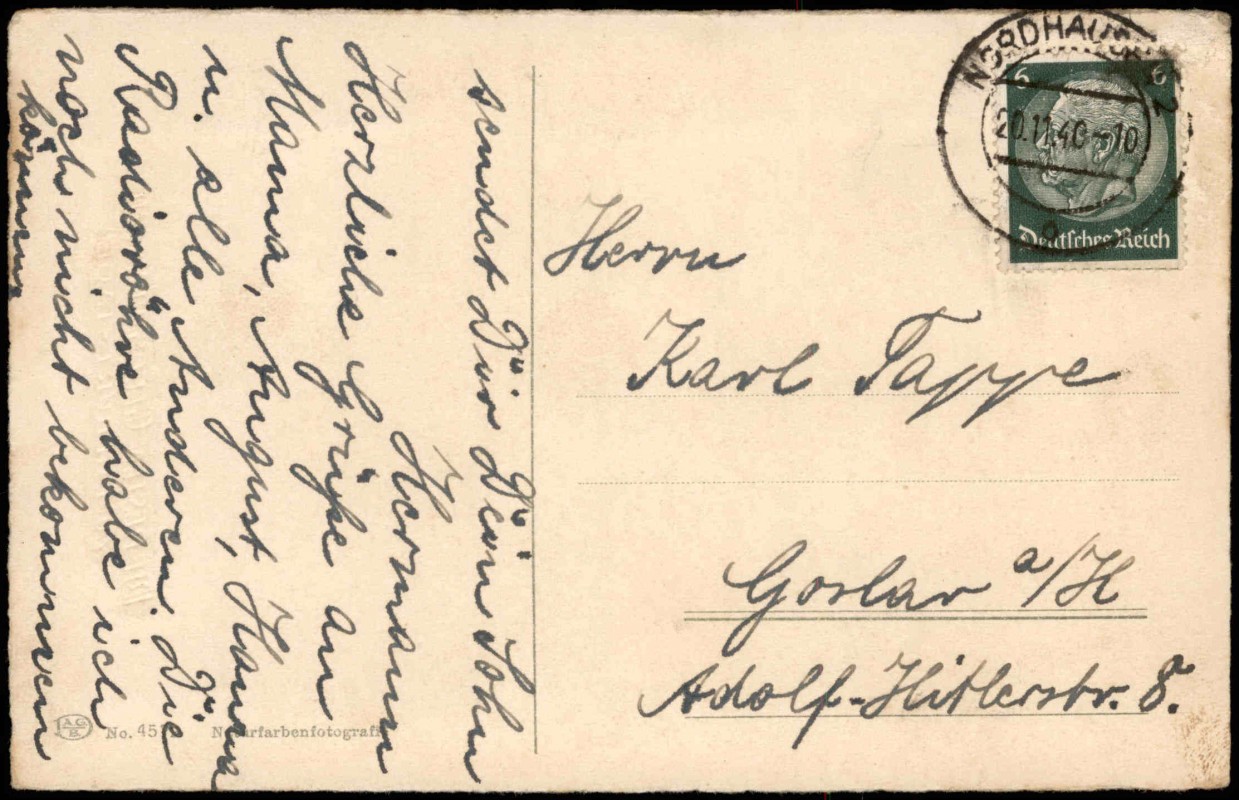 sendet Dir Dein Sohn
Hermann
Herzliche Grüße an
Mama, August, Hanna
u. alle Anderen. Die
Radioröhre habe ich
noch nicht bekommen
können
NORDHAUSEN 2
20.11.40 - 10
6 6
Deutsches Reich
Herrn
Karl Tappe
Goslar a/H
Adolf-Hitlerstr. 8.
No. 45